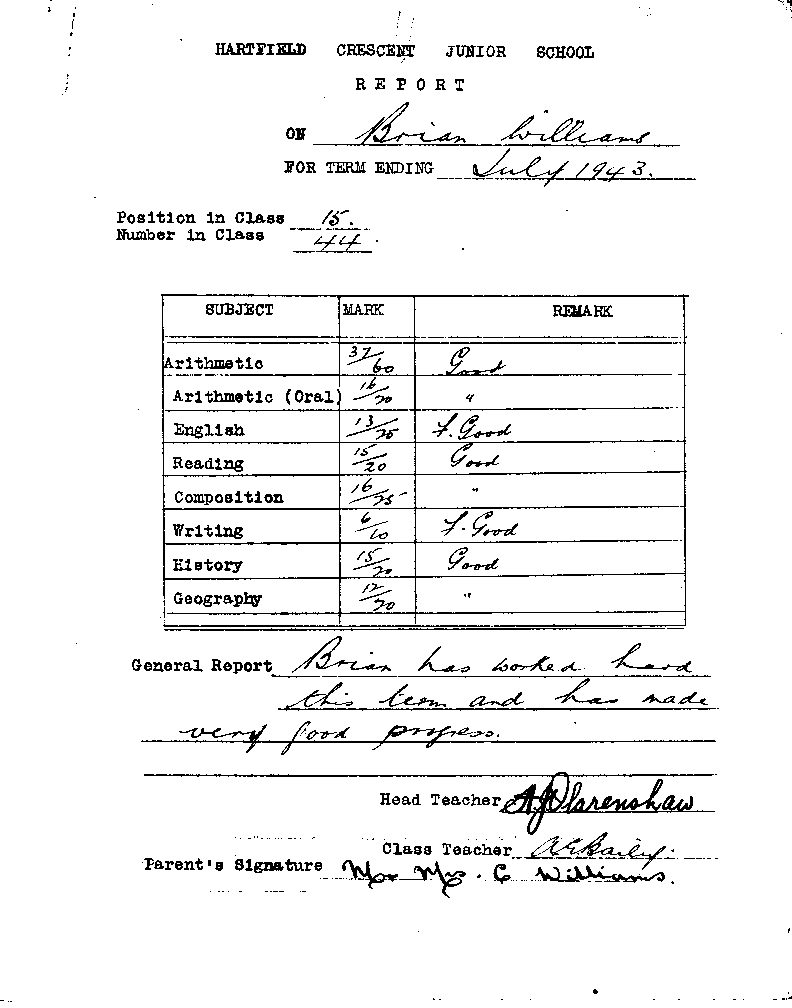 HARTFIELD CRESCENT JUNIOR SCHOOL
REPORT
ON Brian Williams
FOR TERM ENDING July 1943.
Position in Class 15.
Number in Class 44.
SUBJECT MARK REMARK
Arithmetic 37/60 Good
Arithmetic (Oral) 16/20 "
English 13/25 F. Good
Reading 15/20 Good
Composition 16/25 "
Writing 6/10 F. Good
History 15/20 Good
Geography 12/20 "
General Report Brian has worked hard
this term and has made
very good progress.
Head Teacher
Class Teacher
Parent's Signature Mr Mrs. C Williams.